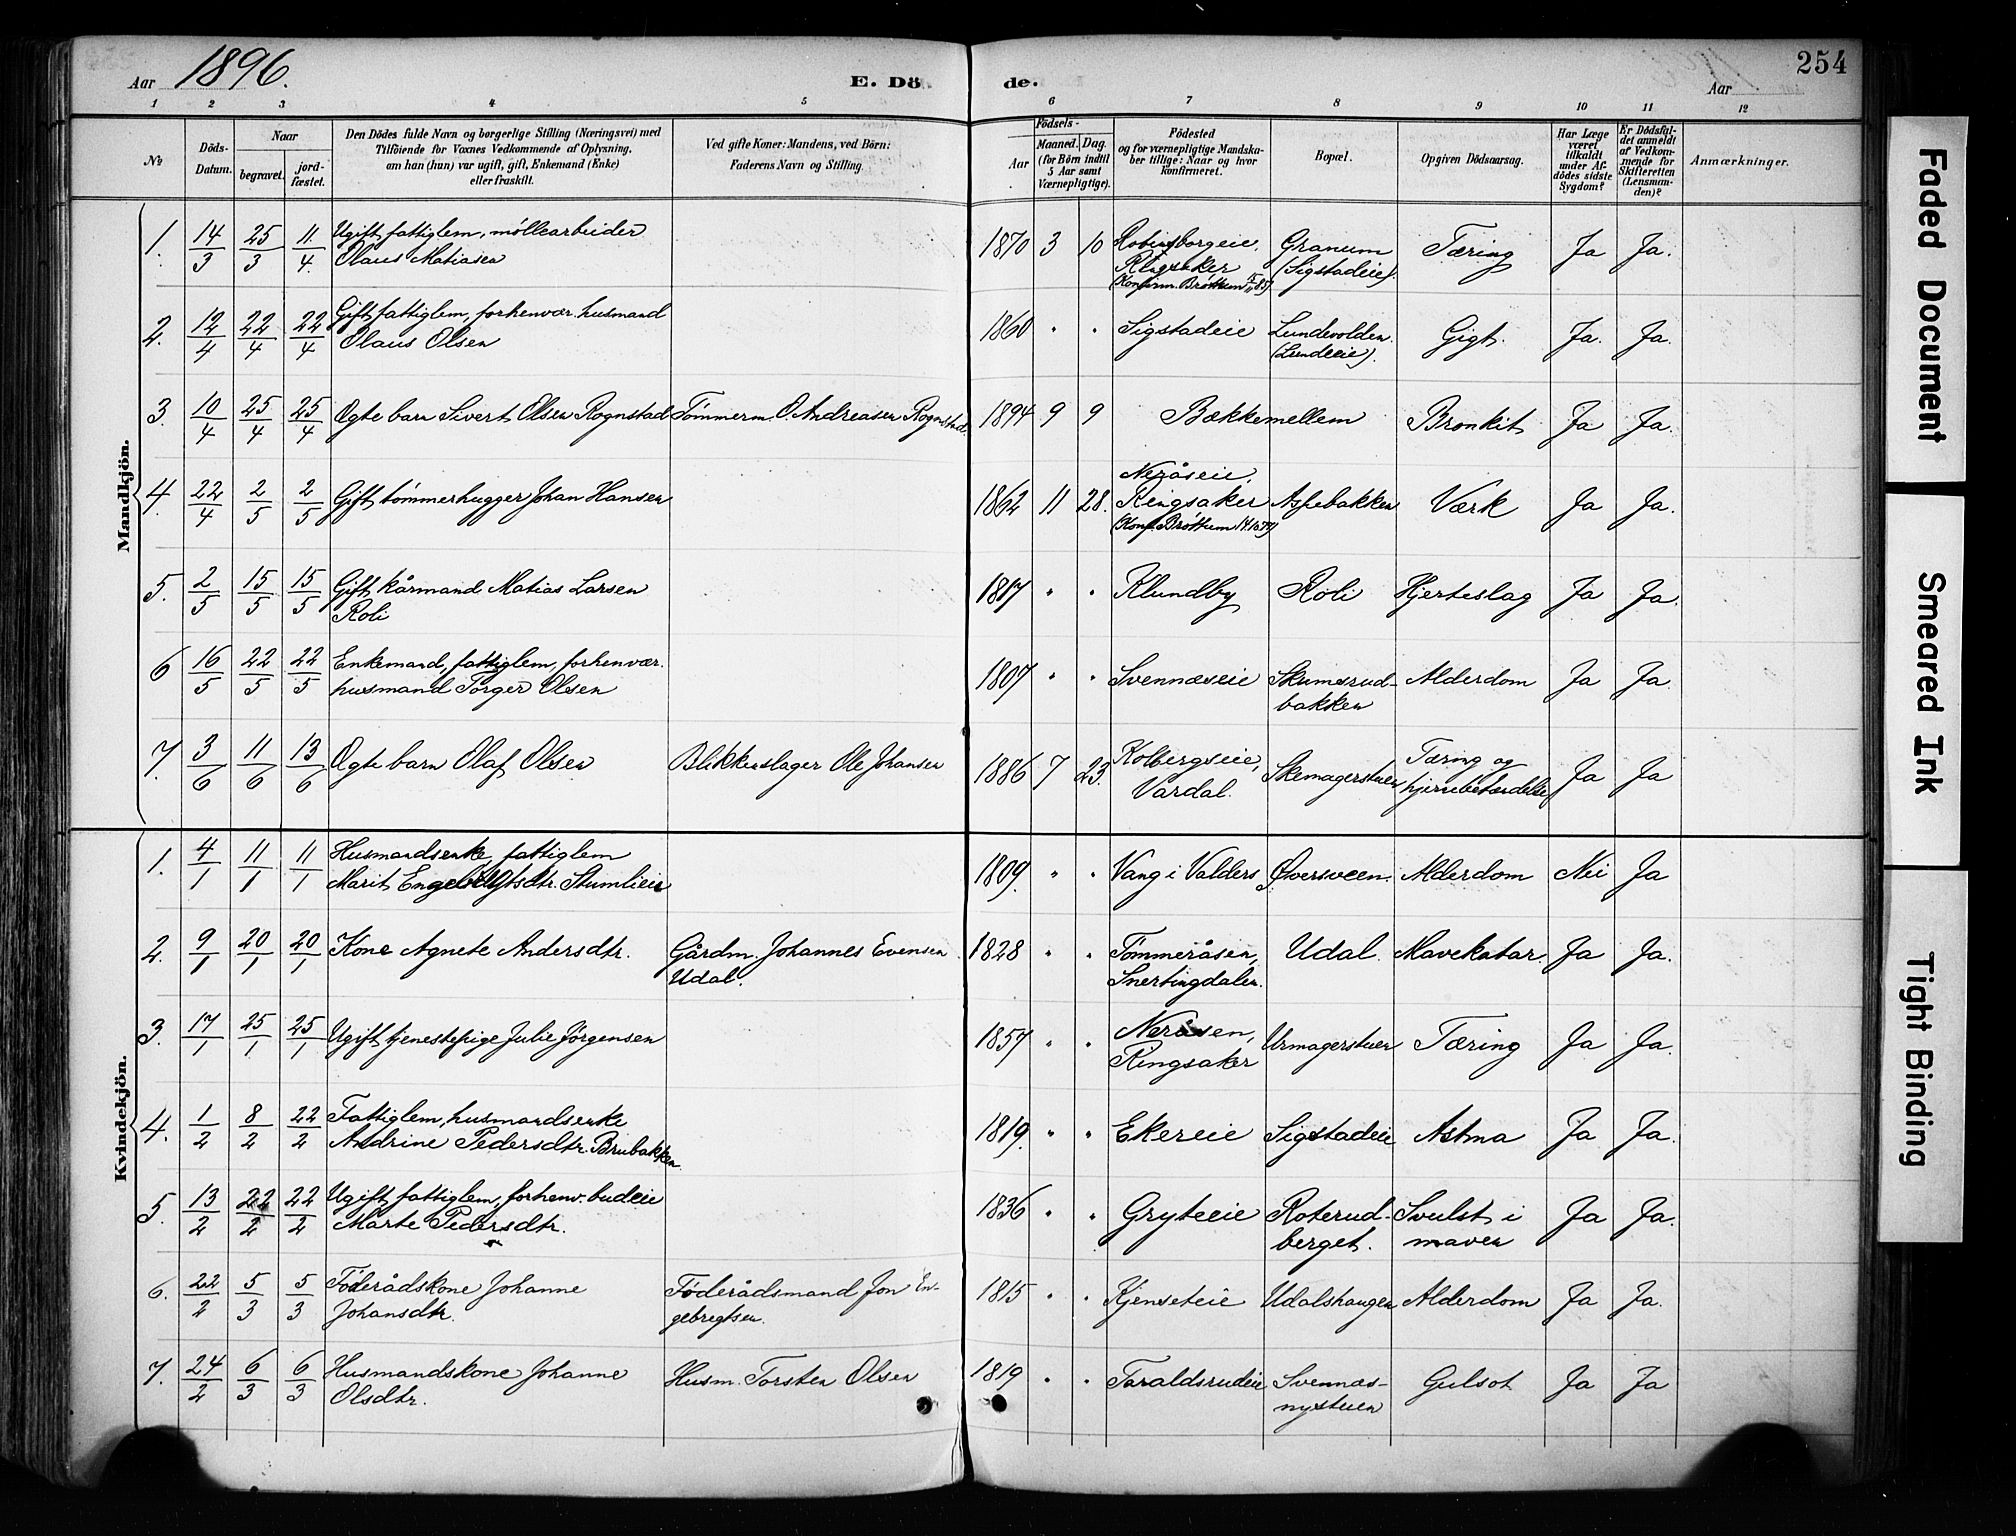 Aar 1896. E. Döde. Aar 254
1 2 3 4 5 6 7 8 9 10 11 12
№
Döds-Datum.
Naar
begravet.
jordfæstet.
Den Dödes fulde Navn og borgerlige Stilling (Næringsvei) med
Tilföiende for Voxnes Vedkommende af Oplysning,
om han (hun) var ugift, gift, Enkemand (Enke)
eller fraskilt.
Ved gifte Koner: Mandens, ved Börn:
Faderens Navn og Stilling.
Födsels-
Aar
Maaned. Dag.
(for Börn indtil
5 Aar samt
Værnepligtige).
Födested
og for værnepligtige Mandska-
ber tillige: Naar og hvor
konfirmeret.
Bopæl.
Opgiven Dödsaarsag.
Har Læge
været
tilkaldt
under Af-
dödes sidste
Sygdom?
Er Dödsfal-
det anmeldt
af Vedkom-
mende for
Skifteretten
(Lensman-
den)?
Anmærkninger.
Mandkjön.
1. 14/3 25/3 11/4 Ugift fattiglem, møllearbeider
Olaus Matiasen
1870 3 10 Ringsaker
Granum
(Sigstadeie).
Tæring Ja Ja.
2. 12/4 22/4 22/4 Gift fattiglem, forhenvær. husmand
Olaus Olsen
1860 " " Sigstadeie Lundevolden.
(Lundeeie).
Gigt. Ja. Ja.
3. 10/4 25/4 25/4 Ægte barn Sivert Olsen Rognstad Tømmerm. O. Andreasen Rognstad. 1894 9 9 Bækkemellem Bronkit Ja Ja.
4. 22/4 2/5 2/5 Gift tømmerhugger Johan Hansen
1862 11 28. Neråseie,
Ringsaker
Aspebakken Værk Ja Ja.
5. 2/5 15/5 15/5 Gift kårmand Matias Larsen
Roli
1817 " " Klundby Roli Hjerteslag Ja Ja.
6 16/5 22/5 22/5 Enkemand, fattiglem, forhenvær.
husmand Torger Olsen
1807 " " Svennæseie Skumsrud-
bakken
Alderdom Ja Ja.
7. 3/6 11/6 13/6 Ægte barn Olaf Olsen Blikkenslager Ole Johansen 1886 7 23. Kolbergseie,
Vardal.
Skomagerstuen Tæring og
hjernebetændelse Ja Ja
Kvindekjön.
1. 4/1 11/1 11/1 Husmandsenke, fattiglem
Marit Engebregtsdtr. Stumlieie
1809. " " Vang i Valders Øversveen. Alderdom Nei Ja
2. 9/1 20/1 20/1 Kone Agnete Andersdtr. Gårdm. Johannes Evensen
Udal.
1828 " " Tømmeråsen,
Snertingdalen.
Udal. Mavekatar. Ja Ja.
3. 17/1 25/1 25/1 Ugift tjenestepige Julie Jørgensen
1857 " " Neråsen,
Ringsaker
Urmagerstuen Tæring Ja Ja.
4. 1/2 8/2 22/2 Fattiglem, husmandsenke
Andrine Pedersdtr. Brubakken.
1819. " " Ekereie Sigstadeie Astma Ja Ja.
5. 13/2 22/2 22/2 Ugift fattiglem, forhenv. budeie
Marte Pedersdtr.
1836 " " Gryteeie Roterud-
berget.
Svulst i
maven
Ja Ja.
6. 22/2 5/3 5/3 Føderådskone Johanne
Johansdtr.
Føderådsmand Jon En-
gebregtsen.
1815 " " Kjenseteie Udalshaugen Alderdom Ja Ja.
7. 24/2 6/3 6/3 Husmandskone Johanne
Olsdtr.
Husm. Torsten Olsen 1819 " " Taraldsrudeie Svennæs-
nystuen
Gulsot Ja Ja
Faded Document
Smeared Ink
Tight Binding